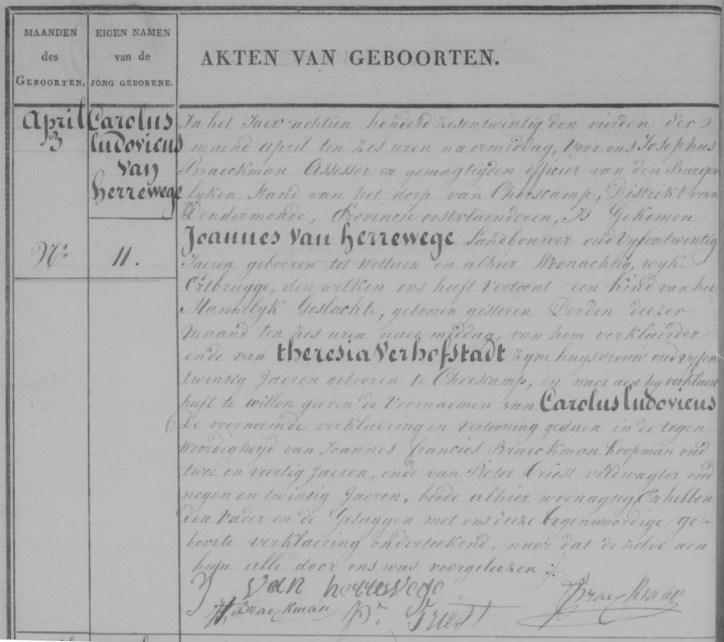 MAANDEN
des
GEBOORTEN.
EIGEN NAMEN
van de
JONG GEBORENE.
AKTEN VAN GEBOORTEN.
April
3
Carolus
ludovicus
van
herrewege
N.º 11.
In het Jaer achtien honderd zesentwintig den vierden der
maend april ten zes uren naermiddag, Voor ons Josephus
Braeckman Assessor en gemagtigden officier van den Burger
lyken Stand van het dorp van Cherscamp, Distrikt van
Dendermonde, Provincie oostvlaenderen, Is Gekomen
Joannes Van herrewege Landbouwer oud Vyfentwintig
Jaeren geboren tot en alhier Woonachtig, wyk
den welken ons heeft Vertoont een Kind van het
Mannelyk Geslachte, geboren gisteren Derden deezer
maand ten zes uren naer middag, van hem verklaerder
ende van theresia Verhofstadt zyne huysvrouw oud vyfen
twintig Jaeren gebooren te Cherskamp, en waer aen hy verklaert
heeft te willen geeven de Voornaemen van Carolus ludovicus
De voornoemde verklaering en Vertooning gedaen in de tegen
Woordigheyd van Joannes francies Braeckman Koopman oud
twee en veertig Jaeren, ende van Pieter Triest veldwagter oud
negen en twintig Jaeren, beede alhier woonagtig, En hebben
den Vader en de Getuygen met ons deeze tegenwoordige ge-
boorte verklaering onderteekend, naer dat de zelve aen
hun alle door ons was voorgeleezen.
J Van herrewege
J, f, Braeckman P.r Triest J Braeckman